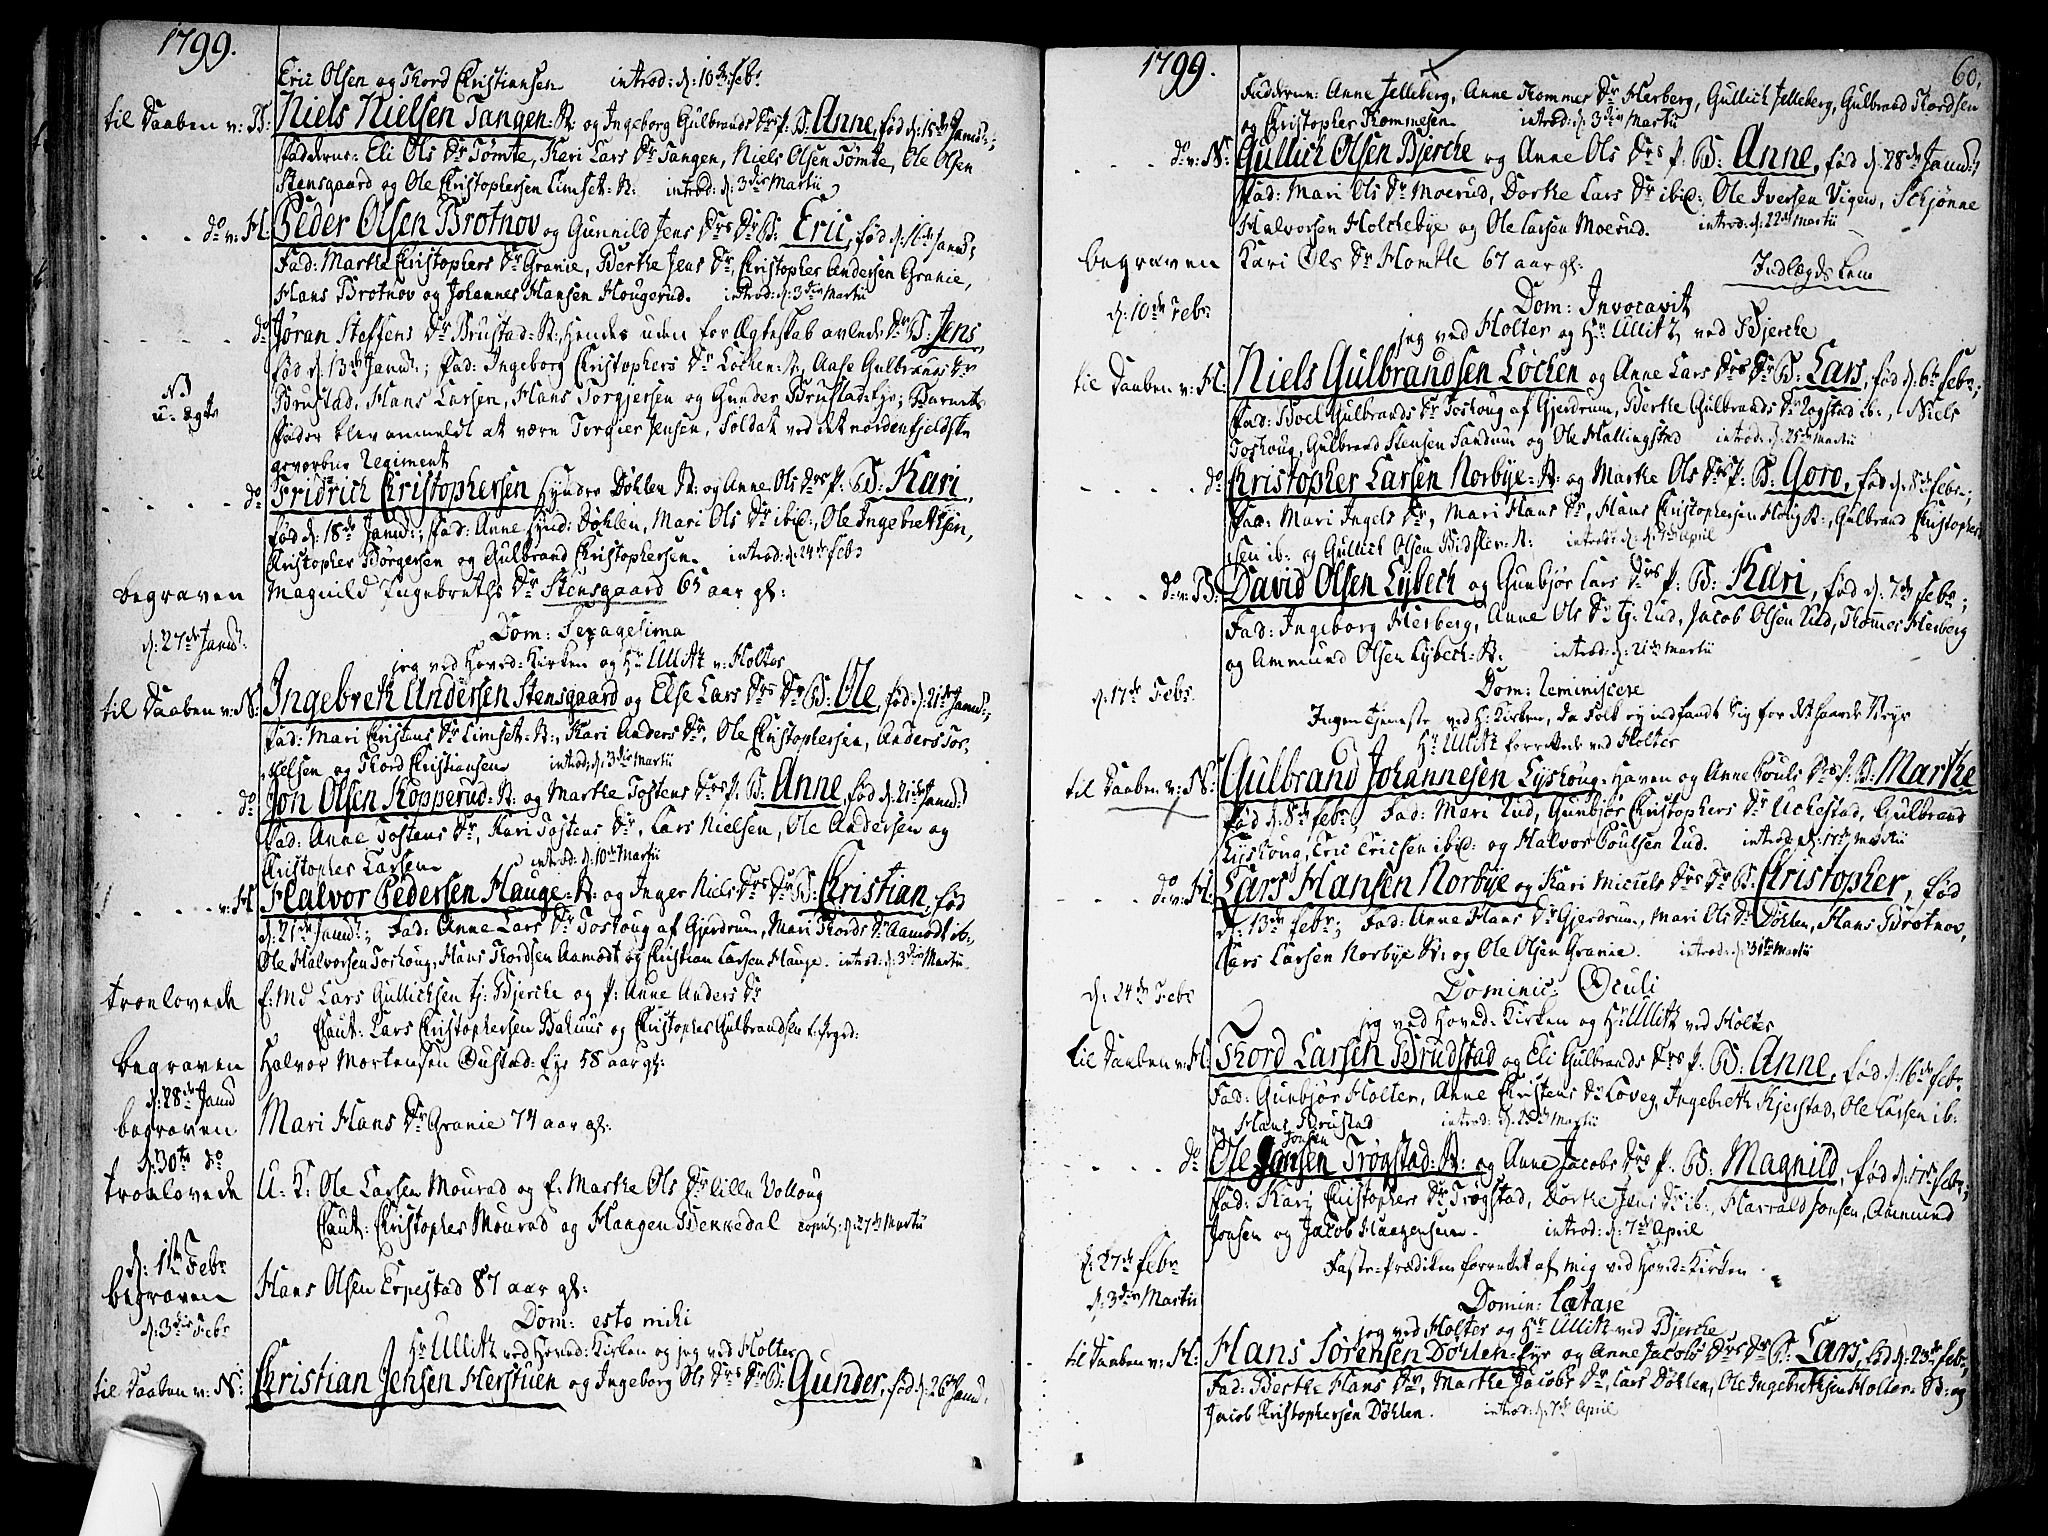 1799.
Eric Olsen og Thord Christiansen introd: d: 10de Febr
til Daaben v: B: Niels Nielsen Tangen-R: og Ingeborg Gulbrands Drs P: B: Anne, fød d: 15de Janu:;
Fadderne: Eli Ols Dr Tømte, Kari Lars Dr Tangen, Niels Olsen Tømte, Ole Olsen
Stensgaard og Ole Christophersen Limset-R: introd: d: 3die Martii
do v: H. Peder Olsen Brotnov og Gunnild Jens Drs Dr B: Eric, fød d: 16de Janu;
Fad: Marthe Christophers Dr Granie, Berthe Jens Dr, Christopher Andersen Granie,
Hans Brotnov og Johannes Hansen Hougerud. introd: d: 3die Martii
do Jøran Steffens Dr Brustad-R:, Hendes uden for Ægteskab avlede Dr B: Jens,
fød d: 13de Janu:; Fad: Ingeborg Christophers Dr Løchen-R:, Aase Gulbrands Dr
NB
u: Ægte
Brustad, Hans Larsen, Hans Torgjersen og Gunder Brustad-Eye; Barnets
Fader blev anmeldt at være Torgier Jensen, Soldat ved det nordenfjeldske
gevorbne Regiment
do Fridrich Christophersen Hyndre Døhlen R: og Anne Ols Drs P: B: Kari,
fød d: 18de Janu:; Fad: Anne Hynd: Døhlen, Mari Ols Dr ibid:, Ole Ingebrethsen,
Christopher Børgersen og Gulbrand Christophersen. introd: d: 24de Febr
begraven Magnild Ingebreths Dr Stensgaard 65 aar gl:
d: 27de Janu: Dom: Sexagesima
jeg ved Hoved-Kirken og Hr Ullitz v: Holter
til Daaben v: N: Ingebreth Andersen Stensgaard og Else Lars Drs Dr B: Ole, fød d: 21de Janu:;
Fad: Mari Christens Dr Limset-R:, Kari Anders Dr, Ole Christophersen, Anders Tor-
kelsen og Thord Christiansen introd: d: 3die Martii
do Jon Olsen Kopperud-R: og Marthe Tostens Drs P: B: Anne, fød d: 21de Janu:
Fad: Anne Tostens Dr, Kari Tostens Dr, Lars Nielsen, Ole Andersen og
Christopher Larsen introd: d: 10de Martii
v: H Halvor Pedersen Hauge-R: og Inger Niels Drs Dr B: Christian, fød
d: 21de Janu:; Fad: Anne Lars Dr Toshoug af Gjerdrum, Mari Thords Dr Aamodt ib:,
Ole Halvorsen Toshoug, Hans Thordsen Aamodt og Christian Larsen Hauge. introd: d: 3die Martii
troelovede E: Md Lars Gullichsen tj: Bjercke og P: Anne Anders Dr
Caut: Lars Christophersen Bahuus og Christopher Gulbrandsen
begraven Halvor Mortensen Oustad-Eye 58 aar gl:
d: 28de Janu
begraven Mari Hans Dr Granie 74 aar gl:
d: 30te do
troelovede U: K: Ole Larsen Mourad og E: Marthe Ols Dr Lille Volloug
Caut: Christopher Mourad og Haagen Bekkedal copul: d: 27de Martii
d: 1ste Febr
begraven Hans Olsen Erpestad 87 aar gl:
d: 3die Febr Dom: esto mihi
Hr Ullitz ved Hoved-Kirken og jeg ved Holter
til Daaben v: N: Christian Jensen Herstuen og Ingeborg Ols Drs Dr B: Gunder, fød d: 26de Janu:,
1799. 60.
Fadderne: Anne Jelleberg, Anne Thommes Dr Herberg, Gullich Jelleberg, Gulbrand Thordsen
og Christopher Thommesen introd: d: 3die Martii
do v: N: Gullich Olsen Bjercke og Anne Ols Drs P: B: Anne, fød d: 28de Janu:;
Fad: Mari Ols Dr Moerud, Dorthe Lars Dr ibid:, Ole Iversen Vigen, Schjønne
Halvorsen Holchebye og Ole Larsen Moerud. introd: d: 22de Martii
begraven Kari Ols Dr Homble 67 aar gl: Indlægds Lem
d: 10de Febr Dom: Invocavit
jeg ved Holter og Hr Ullitz ved Bjercke
til Daaben v: H: Niels Gulbrandsen Løchen og Anne Lars Drs Dr B: Lars, fød d: 6te Febr:;
Fad: Boel Gulbrands Dr Toshoug af Gjerdrum, Berthe Gulbrands Dr Rogstad ib:, Niels
Toshoug, Gulbrand Stensen Sandum og Ole Hallingstad introd: d: 25de Martii
do Christopher Larsen Norbye-R: og Marthe Ols Drs P: B: Goro, fød d: 8de Febr:;
Fad: Mari Ingels Dr, Mari Hans Dr, Hans Christophersen Houg R:, Gulbrand Christopher-
sen ib: og Gullich Olsen Bidsler-R: introd: d: 7de April
do v: B: David Olsen Lybech og Gunbjør Lars Drs P: B: Kari, fød d: 7de Febr:;
Fad: Ingeborg Herberg, Anne Ols Dr tj: Rud, Jacob Olsen Rud, Thommes Herberg
og Ammund Olsen Lybech-R: introd: d: 21de Martii
d: 17de Febr. Dom: Reminiscere
Ingen Tjeneste ved H: Kirken, da Folk ey indfandt sig for det haarde Veyr
Hr Ullitz forrettede ved Holter
til Daaben v: N: Gulbrand Johannesen Lyshoug-Haven og Anne Pouls Drs P: B: Marthe
fød d: 8de Febr:, Fad: Mari Rud, Gunbjør Christophers Dr Uckestad, Gulbrand
Lyshoug, Eric Ericsen ibid: og Halvor Poulsen Rud. introd: d: 17de Martii
do v: H. Lars Hansen Norbye og Kari Michels Drs Dr B: Christopher, fød
d: 13de Febr:; Fad: Anne Hans Dr Gjerdrum, Mari Ols Dr Døhlen, Hans Brotnov,
Lars Larsen Norbye R: og Ole Olsen Granie. introd: d: 31te Martii
d: 24de Febr Dominic: Oculi
jeg ved Hoved-Kirken og Hr Ullitz ved Holter
til Daaben v: H: Thord Larsen Brudstad og Eli Gulbrands Drs P: B: Anne, fød d: 16de Febr
Fad: Gunbjør Holter, Anne Christens Dr Loveg, Ingebreth Kjerstad, Ole Larsen ib:
og Hans Brustad introd: d: 25de Martii
Jonsen
do Ole Jonsen Trøgstad-R: og Anne Jacobs Drs P: B: Magnild, fød d: 17de Febr:;
Fad: Kari Christophers Dr Trøgstad, Dorthe Jens Dr ib:, Harrald Jonsen, Ammund
Jonsen og Jacob Haagensen. introd: d: 7de April
d: 27de Febr Faste-Prædiken forrettet af mig ved Hoved-Kirken
d: 3die Martii Domin: Lætare
jeg ved Holter og Hr Ullitz ved Bjercke
til Daaben v: H: Hans Sørensen Døhlen-Eye og Anne Jacobs Drs Dr B: Lars, fød d: 23de Febr:,
Fad: Berthe Hans Dr, Marthe Jacobs Dr, Lars Døhlen, Ole Ingebrethsen Holter-R: og
Jacob Christophersen Døhlen. introd: d: 7de April